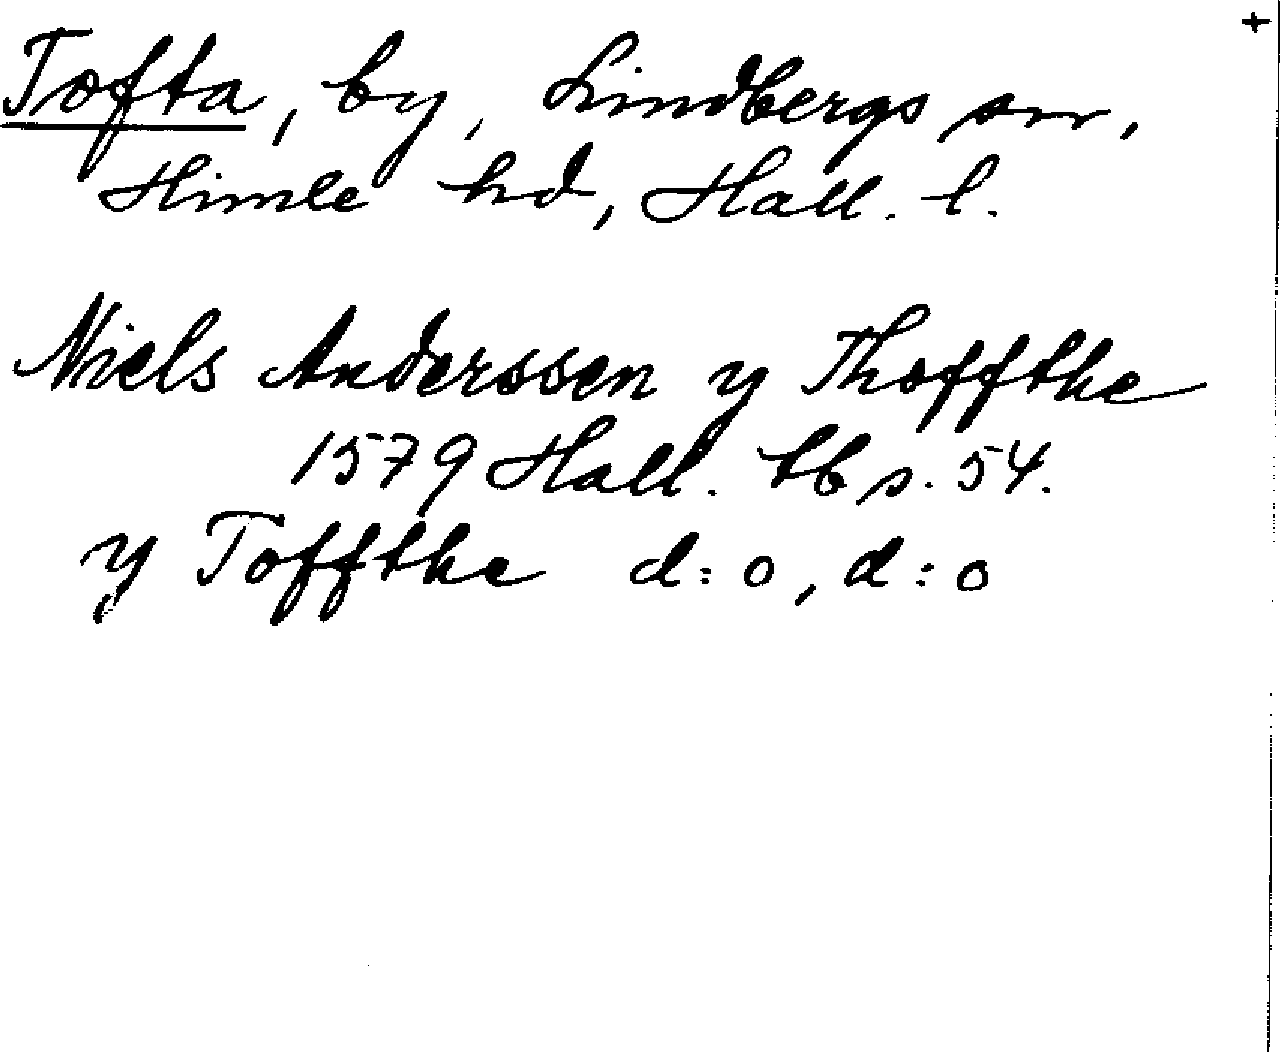 +
Tofta, by, Lindbergs sn,
Himle hd, Hall. l.
Niels Anderssen y Thoffthe
1579 Hall. tb s. 54.
y Toffthe d:o, d:o